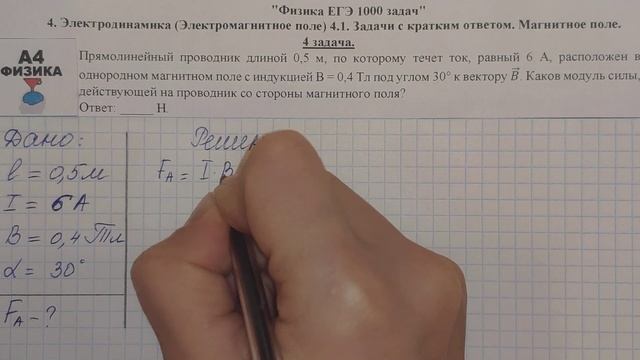 "Физика ЕГЭ 1000 задач"
4. Электродинамика (Электромагнитное поле) 4.1. Задачи с кратким ответом. Магнитное поле.
4 задача.
А4
ФИЗИКА
Прямолинейный проводник длиной 0,5 м, по которому течет ток, равный 6 А, расположен в
однородном магнитном поле с индукцией В = 0,4 Тл под углом 30° к вектору B⃗. Каков модуль силы,
действующей на проводник со стороны магнитного поля?
Ответ: _____ Н.
Дано:
l = 0,5м
I = 6А
B = 0,4 Тл
α = 30°
F_A - ?
F_A = I · B